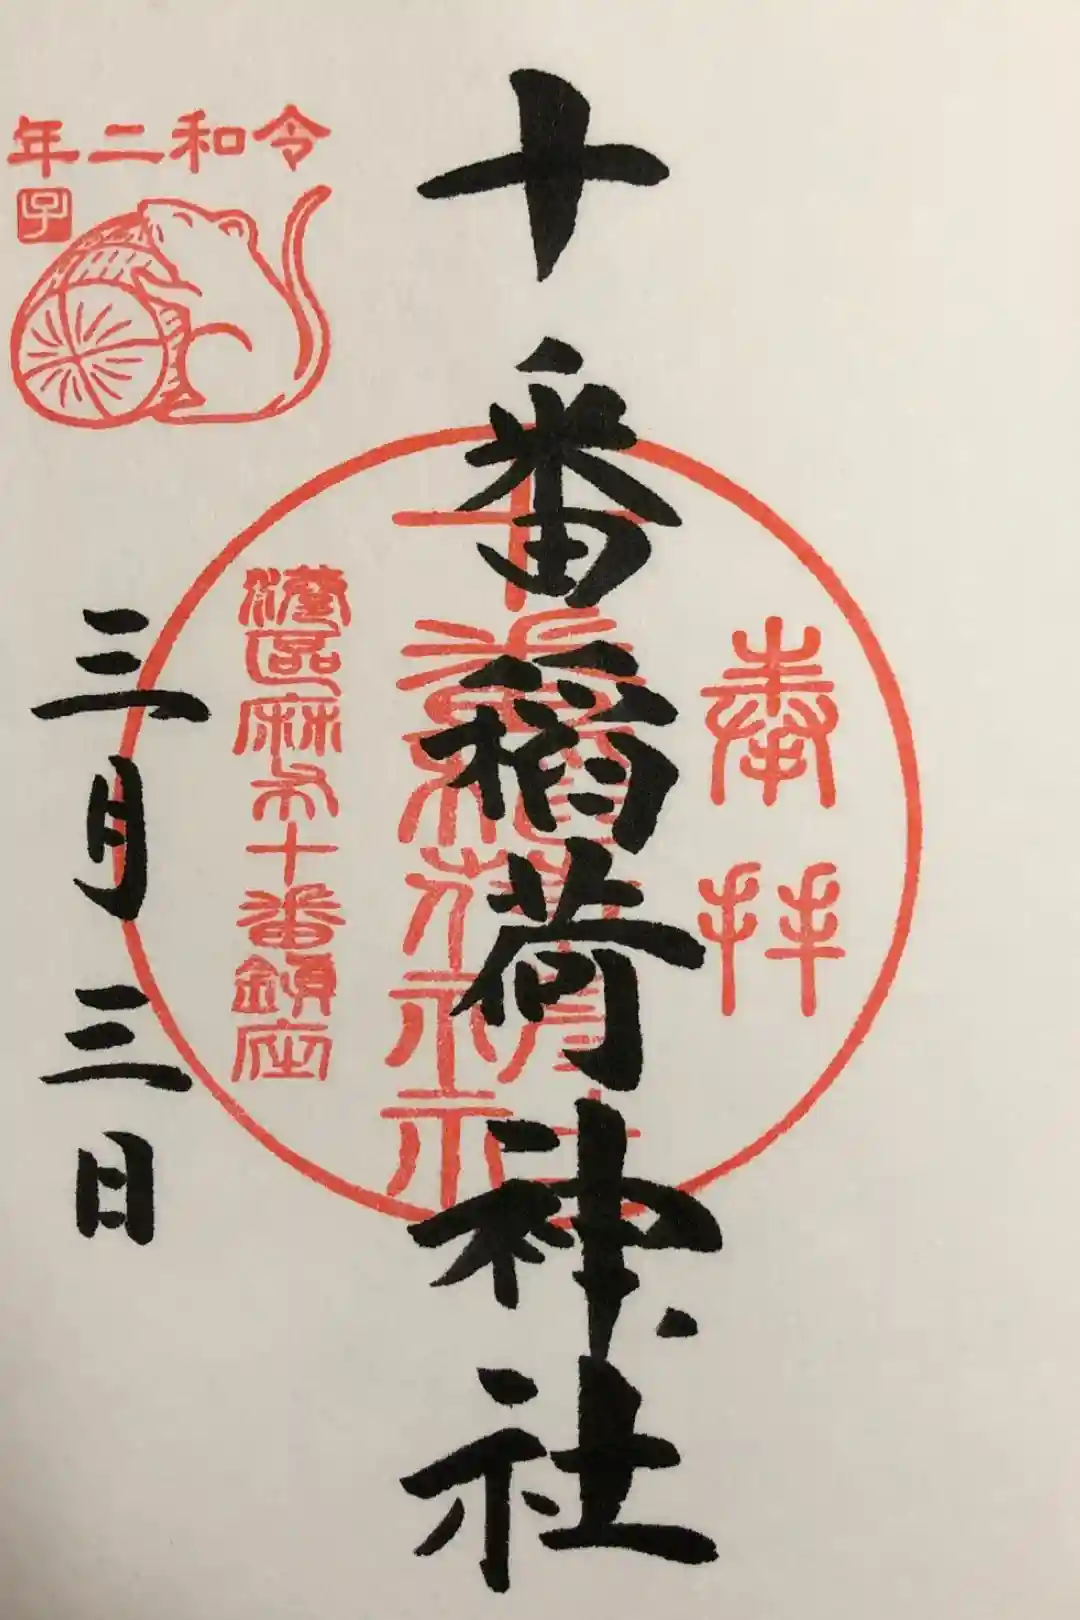 奉拝
十番稲荷神社
十番稲荷神社
港区麻布十番鎮座
令和二年
子
三月三日